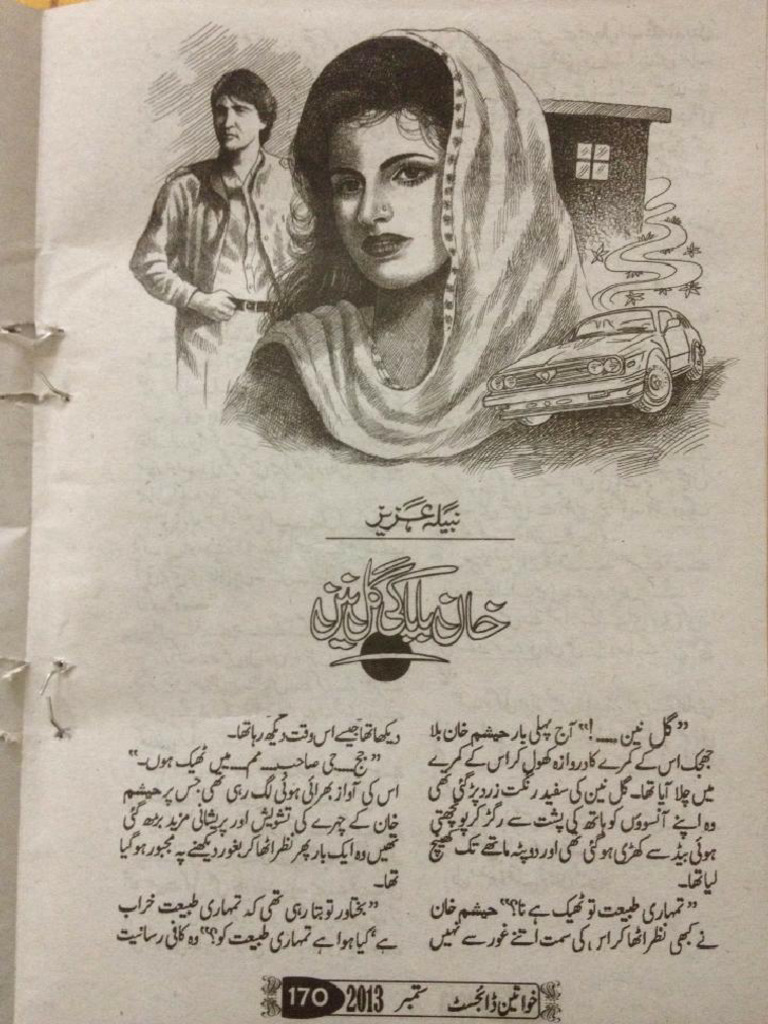 نبیلہ عزیز
خان بابا کی گل نین
”گل نین ___!“ آج پہلی بار حیشم خان بلا
جھجک اس کے کمرے کا دروازہ کھول کر اس کے کمرے
میں چلا آیا تھا۔ گل نین کی سفید رنگت زرد پڑ گئی تھی
وہ اپنے آنسوؤں کو ہاتھ کی پشت سے رگڑ کر پونچھتی
ہوئی بیڈ سے کھڑی ہو گئی تھی اور دوپٹہ ماتھے تک کھینچ
لیا تھا۔
”تمہاری طبیعت تو ٹھیک ہے نا؟“ حیشم خان
نے کبھی نظر اٹھا کر اس کی سمت اتنے غور سے نہیں
دیکھا تھا جیسے اس وقت دیکھ رہا تھا۔
”جج۔ جی صاحب۔ مم۔ میں ٹھیک ہوں۔“
اس کی آواز بھرائی ہوئی لگ رہی تھی جس پر حیشم
خان کے چہرے کی تشویش اور پریشانی مزید بڑھ گئی
تھیں وہ ایک بار پھر نظر اٹھا کر بغور دیکھنے پہ مجبور ہو گیا
تھا۔
”بختاور تو بتا رہی تھی کہ تمہاری طبیعت خراب
ہے، کیا ہوا ہے تمہاری طبیعت کو؟“ وہ کافی رسانیت
خواتین ڈائجسٹ ستمبر 2013 170